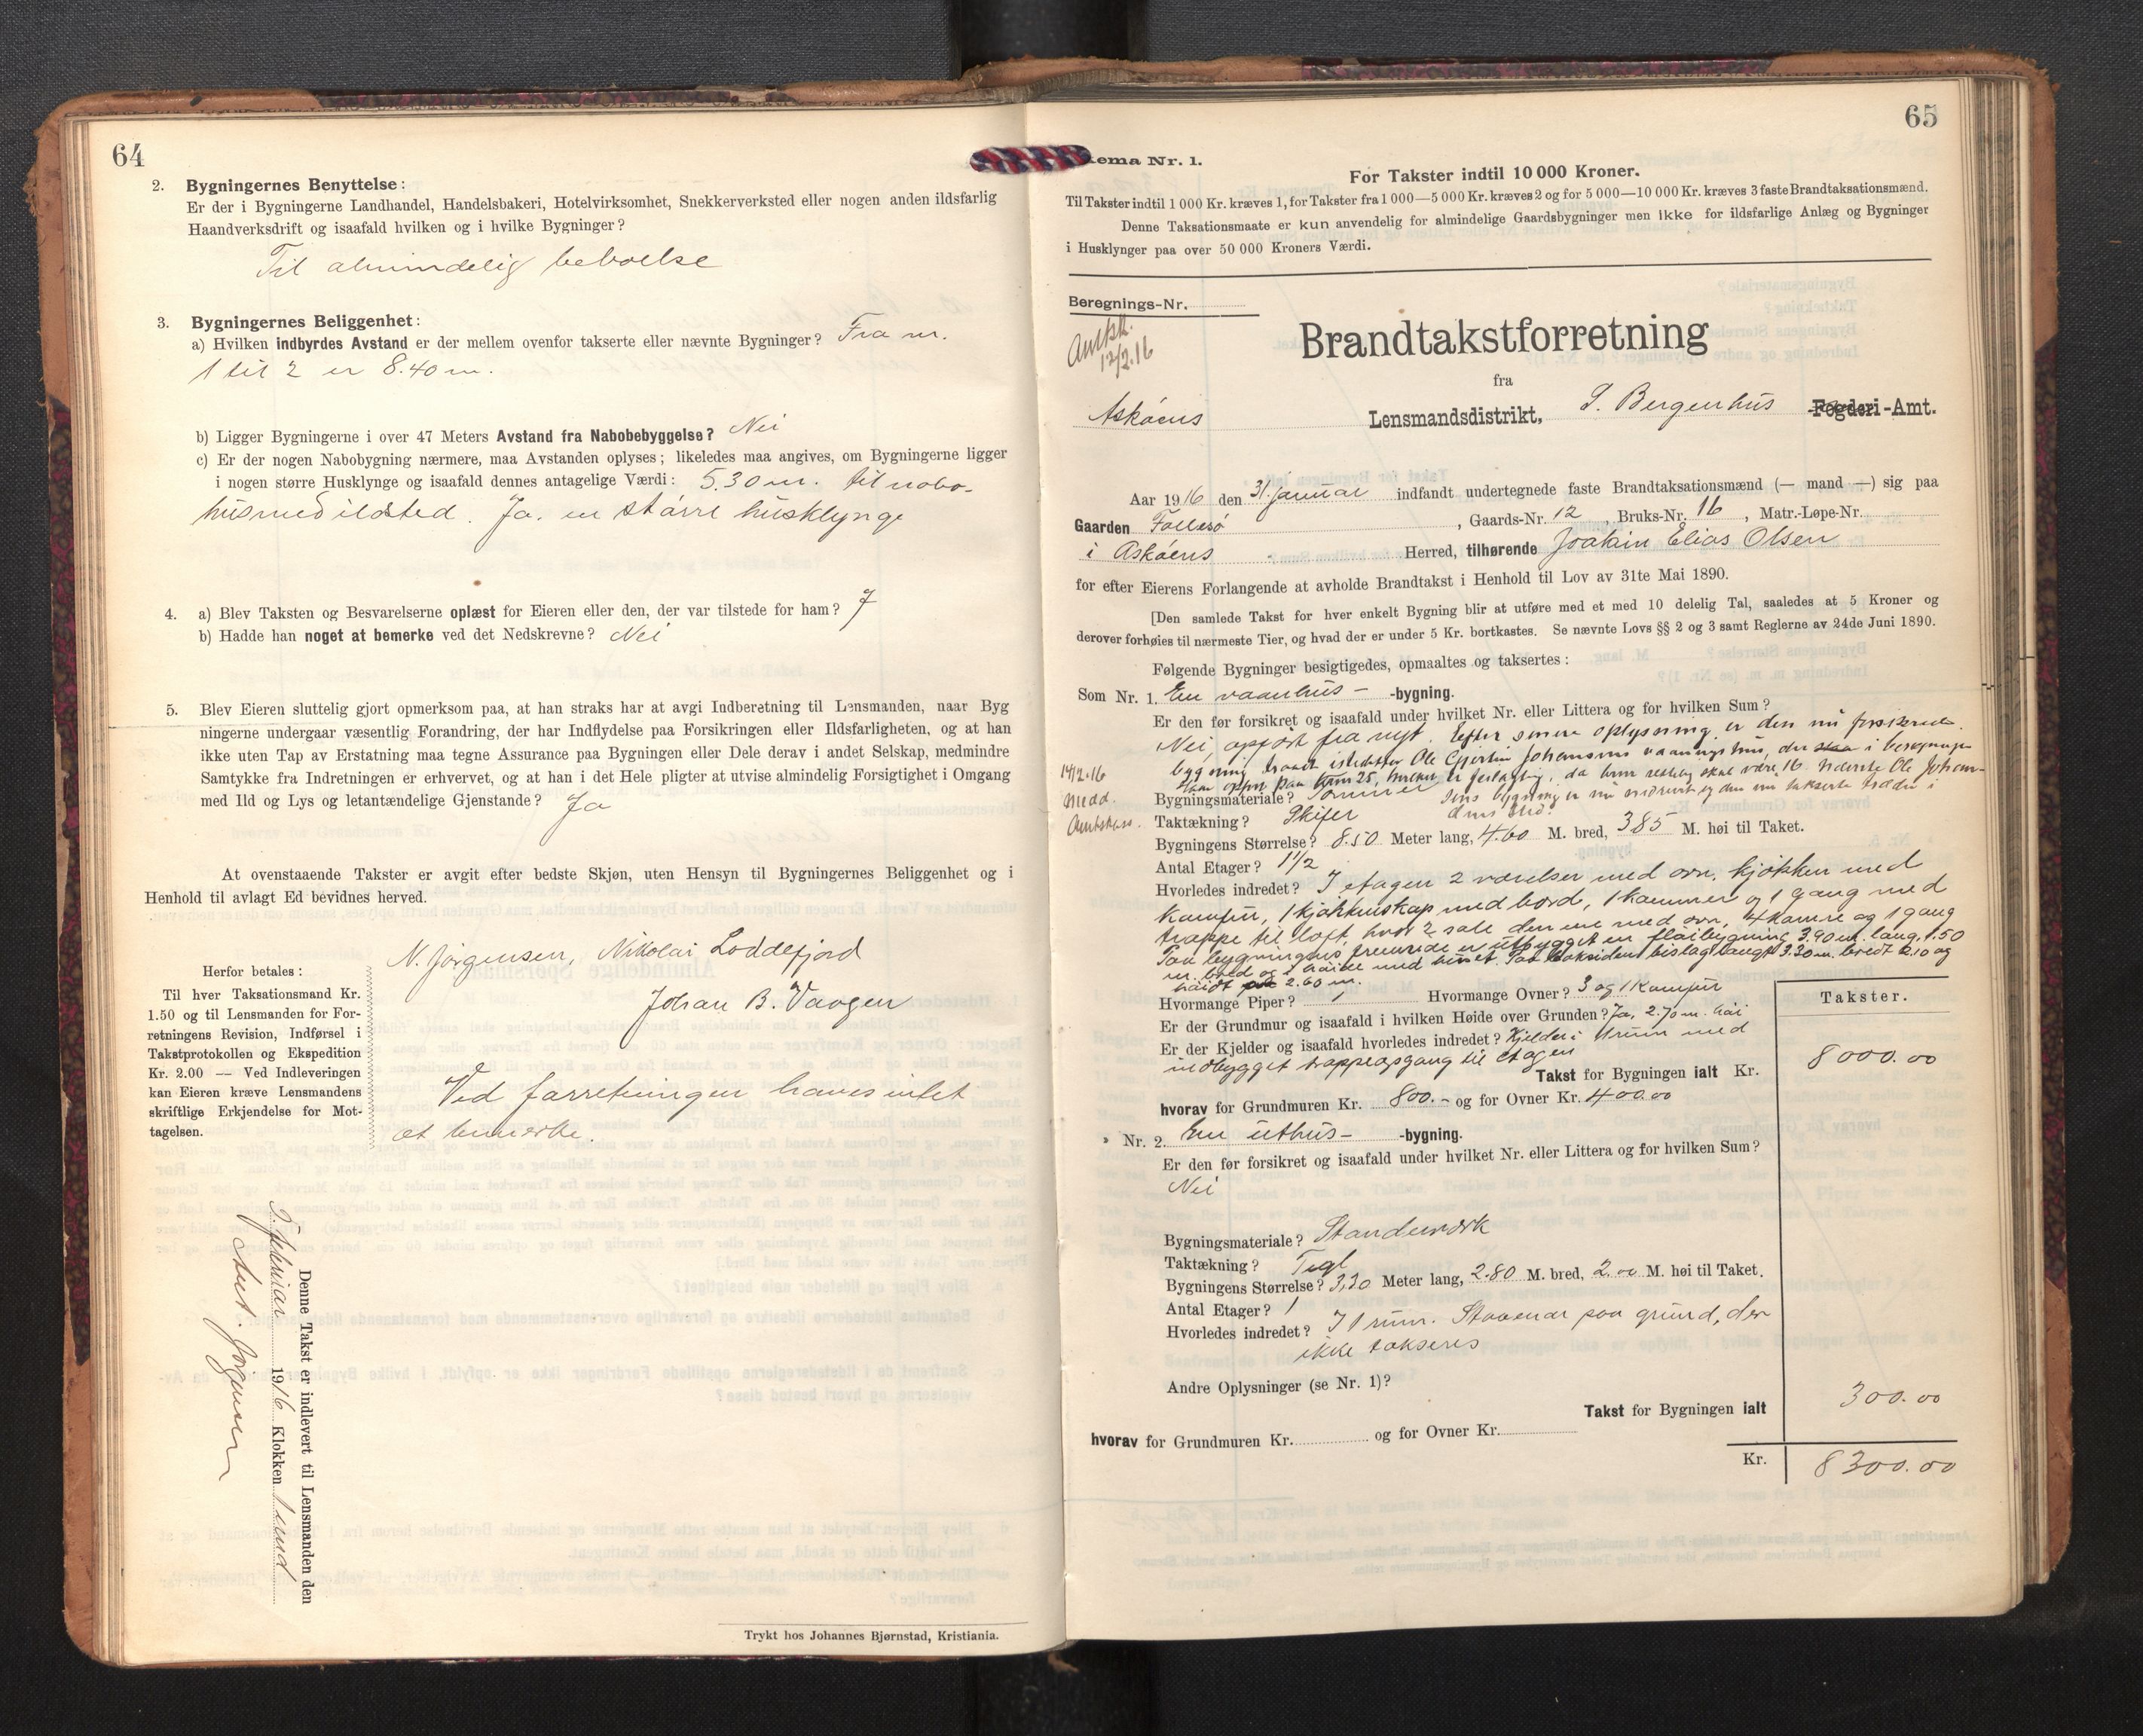 64
2. Bygningernes Benyttelse:
Er der i Bygningerne Landhandel, Handelsbakeri, Hotelvirksomhet, Snekkerverksted eller nogen anden ildsfarlig
Haandverksdrift og isaafald hvilken og i hvilke Bygninger?
Til almindelig beboelse
3. Bygningernes Beliggenhet:
a) Hvilken indbyrdes Avstand er der mellem ovenfor takserte eller nævnte Bygninger? Fra nr.
1 til 2 er 8.40 m.
b) Ligger Bygningerne i over 47 Meters Avstand fra Nabobebyggelse? Nei
c) Er der nogen Nabobygning nærmere, maa Avstanden oplyses; likeledes maa angives, om Bygningerne ligger
i nogen større Husklynge og isaafald dennes antagelige Værdi: 5.30 m. til nabo-
hus med ildsted. Ja, en større husklynge
4. a) Blev Taksten og Besvarelserne oplæst for Eieren eller den, der var tilstede for ham? J
b) Hadde han noget at bemerke ved det Nedskrevne? Nei
5. Blev Eieren sluttelig gjort opmerksom paa, at han straks har at avgi Indberetning til Lensmanden, naar Byg
ningerne undergaar væsentlig Forandring, der har Indflydelse paa Forsikringen eller Ildsfarligheten, og at han
ikke uten Tap av Erstatning maa tegne Assurance paa Bygningen eller Dele derav i andet Selskap, medmindre
Samtykke fra Indretningen er erhvervet, og at han i det Hele pligter at utvise almindelig Forsigtighet i Omgang
med Ild og Lys og letantændelige Gjenstande? Ja
At ovenstaaende Takster er avgit efter bedste Skjøn, uten Hensyn til Bygningernes Beliggenhet og i
Henhold til avlagt Ed bevidnes herved.
N. Jørgensen, Nikolai Loddefjord
Johan B. Vaagen
Herfor betales:
Til hver Taksationsmand Kr.
1.50 og til Lensmanden for For-
retningens Revision, Indførsel i
Takstprotokollen og Ekspedition
Kr. 2.00 — Ved Indleveringen
kan Eieren kræve Lensmandens
skriftlige Erkjendelse for Mot-
tagelsen.
Ved forretningen haves intet
at bemerke.
Denne Takst er indlevert til Lensmanden den
3 februar 1916 Klokken 1 emd
Ant. Jørgensen
Trykt hos Johannes Bjørnstad, Kristiania.
65
ema Nr. 1.
For Takster indtil 10 000 Kroner.
Til Takster indtil 1 000 Kr. kræves 1, for Takster fra 1 000—5 000 Kr. kræves 2 og for 5 000—10 000 Kr. kræves 3 faste Brandtaksationsmænd.
Denne Taksationsmaate er kun anvendelig for almindelige Gaardsbygninger men ikke for ildsfarlige Anlæg og Bygninger
i Husklynger paa over 50 000 Kroners Værdi.
Beregnings-Nr.
12/2.16
Brandtakstforretning
fra
Askøens Lensmandsdistrikt, S. Bergenhus Fogderi-Amt.
Aar 1916 den 31. januar indfandt undertegnede faste Brandtaksationsmænd (— mand —) sig paa
Gaarden Follesø, Gaards-Nr. 12, Bruks-Nr. 16, Matr.-Løpe-Nr.
i Askøens Herred, tilhørende Joakim Elias Olsen
for efter Eierens Forlangende at avholde Brandtakst i Henhold til Lov av 31te Mai 1890.
[Den samlede Takst for hver enkelt Bygning blir at utføre med et med 10 delelig Tal, saaledes at 5 Kroner og
derover forhøies til nærmeste Tier, og hvad der er under 5 Kr. bortkastes. Se nævnte Lovs §§ 2 og 3 samt Reglerne av 24de Juni 1890.
Følgende Bygninger besigtigedes, opmaaltes og taksertes:
Som Nr. 1. En vaanhus- -bygning.
Er den før forsikret og isaafald under hvilket Nr. eller Littera og for hvilken Sum?
Nei, opført fra nyt. Efter senere oplysning er den nu forsikrede
bygning traadt istedetfor Ole Gjertin Johansens vaaningshus, der staa i beregnings
14/2.16
Medd.
Bygningsmateriale? Tømmer
Taktækning? Skifer
Bygningens Størrelse? 8.50 Meter lang, 4.60 M. bred, 385 M. høi til Taket.
Antal Etager? 1 1/2
Hvorledes indredet? I etagen 2 værelser med ovn, kjøkken med
komfur, 1 kjøkkenskap med bord, 1 kammer og 1 gang med
trappe til loft, hvor 2 sale den ene med ovn, 4 kamre og 1 gang
Paa bygningens fremside er utbygget en fløibygning 3.90 m. lang, 1.50
m. bred og i høide med huset. Paa baksiden bislag langt 3.30 m. bredt 2.10 og
høidt 2.60 m.
Hvormange Piper? 1 Hvormange Ovner? 3 og 1 komfur
Er der Grundmur og isaafald i hvilken Høide over Grunden? Ja, 2.70 m. høi
Er der Kjelder og isaafald hvorledes indredet? Kjelder i 1 rum med
indbygget trappeopgang til etagen
Takst for Bygningen ialt Kr.
Takster.
8000.00
hvorav for Grundmuren Kr. 800.- og for Ovner Kr. 400.00
Nr. 2. En uthus- -bygning.
Er den før forsikret og isaafald under hvilket Nr. eller Littera og for hvilken Sum?
Nei
Bygningsmateriale? Standerverk
Taktækning? Tegl
Bygningens Størrelse? 3,20 Meter lang, 2.80 M. bred, 2.00 M. høi til Taket.
Antal Etager? 1
Hvorledes indredet? I 1 rum. Staaende paa grund, der
ikke takseres
Andre Oplysninger (se Nr. 1)?
Takst for Bygningen ialt
300.00
hvorav for Grundmuren Kr. og for Ovner Kr.
Kr. 8300.00